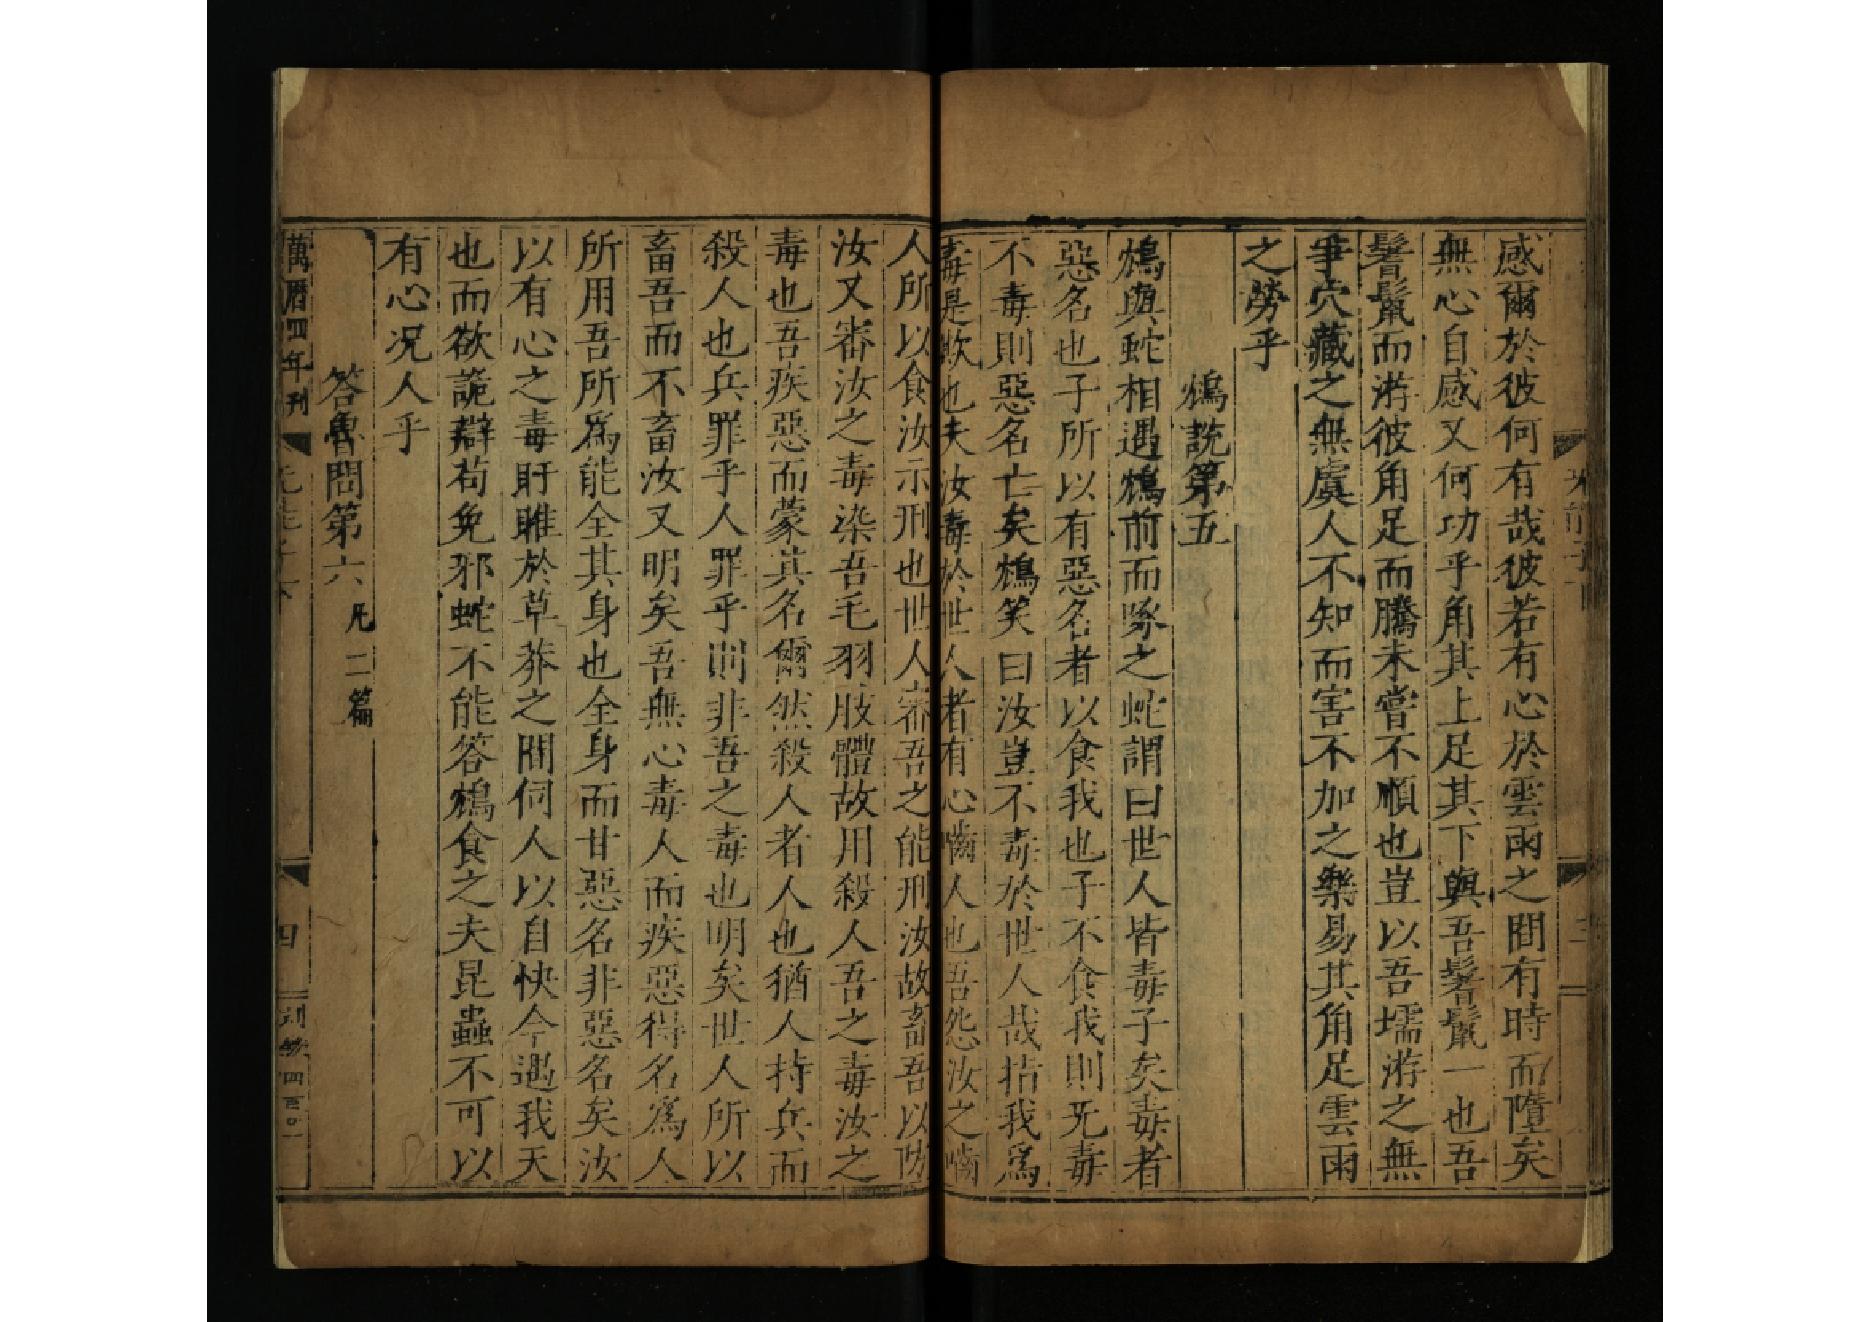 感爾於彼何有哉彼若有心於雲雨之間有時而墮矣
無心自感又何功乎角其上足其下與吾鬐鬣一也吾
鬐鬣而游彼角足而騰未嘗不順也豈以吾壖游之無
爭穴藏之無虞人不知而害不加之樂易其角足雲雨
之勞乎
鴆說第五
鴆與蛇相遇鴆前而啄之蛇謂曰世人皆毒子矣毒者
惡名也子所以有惡名者以食我也子不食我則无毒
不毒則惡名亡矣鴆笑曰汝豈不毒於世人哉指我為
毒是欺也夫汝毒於世人者有心嚙人也吾怨汝之嚙
人所以食汝示刑也世人審吾之能刑汝故畜吾以防
汝又審汝之毒染吾毛羽肢體故用殺人吾之毒汝之
毒也吾疾惡而蒙其名爾然殺人者人也猶人持兵而
殺人也兵罪乎人罪乎則非吾之毒也明矣世人所以
畜吾而不畜汝又明矣吾無心毒人而疾惡得名為人
所用吾所為能全其身也全身而甘惡名非惡名矣汝
以有心之毒盱睢於草莽之間伺人以自快今遇我天
也而欲詭辯苟免邪蛇不能答鴆食之夫昆蟲不可以
有心况人乎
答魯問第六 凡二篇
萬曆四年刊